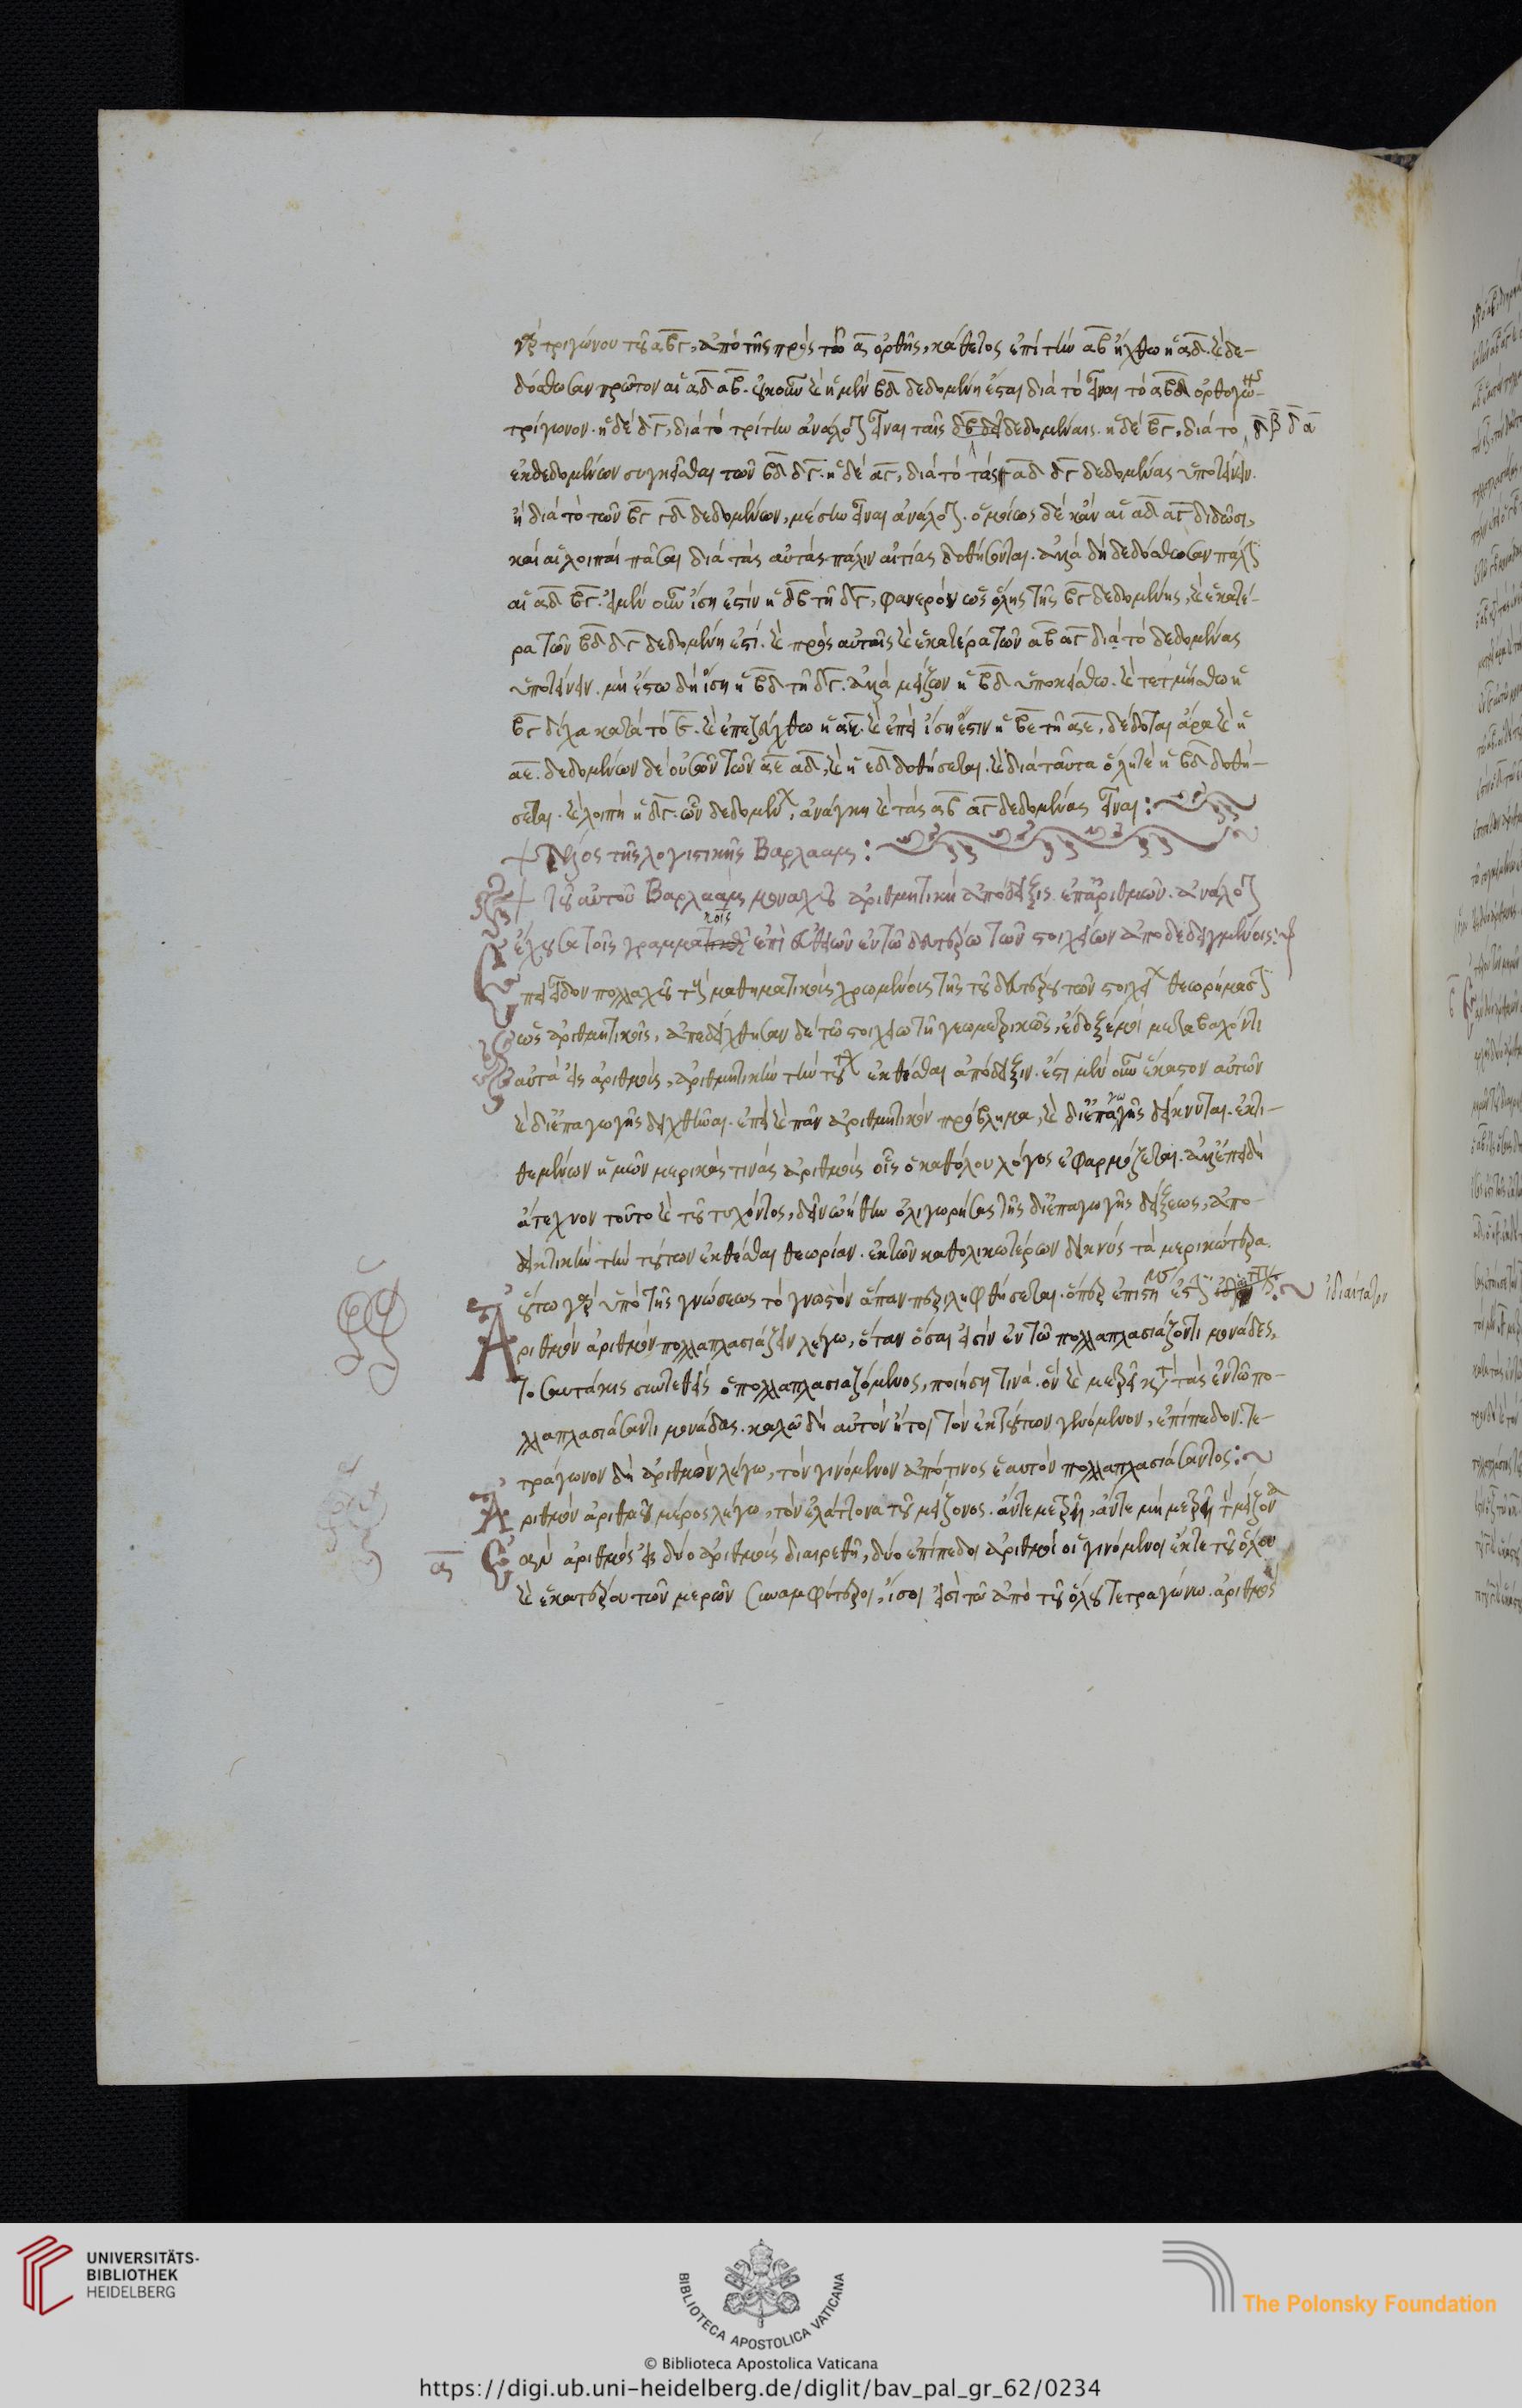 τριγώνου τοῦ αβγ, ἀπὸ τῆς πρὸς τῶ α ὀρθῆς, κάθετος ἐπὶ τὴν αβ ἤχθω ἡ αδ. καὶ δε-
δόσθωσαν πρῶτον αἱ αδ αβ. οὐκοῦν καὶ ἡ μὲν βδ δεδομένη ἔσται διὰ τὸ εἶναι τὸ αβδ ὀρθογώ-
τρίγωνον. ἡ δὲ δγ, διὰ τὸ τρίτην ἀνάλογον εἶναι ταῖς δβ δα δεδομέναις. ἡ δὲ βγ, διὰ τὸ
δ β δ α
ἐκ δεδομένων συγκεῖσθαι τῶν βδ δγ. ἡ δὲ αγ, διὰ τὸ τὰς αδ δγ δεδομένας ὑποτείνειν.
ἢ διὰ τὸ τῶν βγ γδ δεδομένων, μέσην εἶναι ἀνάλογον. ὁμοίως δὲ κἂν αἱ αδ αγ διδῶσι,
καὶ αἱ λοιπαὶ πᾶσαι διὰ τὰς αὐτὰς πάλιν αἰτίας δοθήσονται. ἀλλὰ δὴ δεδόσθωσαν πάλιν
αἱ αδ βγ. εἰ μὲν οὖν ἴση ἐστὶν ἡ δβ τῆ δγ, φανερὸν ὡς ὅλης τῆς βγ δεδομένης, καὶ ἑκατέ-
ρα τῶν βδ δγ δεδομένη ἐστί. καὶ πρὸς αὐταῖς καὶ ἑκατέρα τῶν αβ αγ διὰ τὸ δεδομένας
ὑποτείνειν. μὴ ἔστω δὴ ἴση ἡ βδ τῆ δγ. ἀλλὰ μείζων ἡ βδ ὑποκείσθω. καὶ τετμήσθω ἡ
βγ δίχα κατὰ τὸ ε. καὶ ἐπεζεύχθω ἡ αε. καὶ ἐπεὶ ἴση ἐστιν ἡ βε τῆ αε, δέδοται ἄρα καὶ ἡ
αε. δεδομένων δὲ οὐσῶν τῶν αε αδ, καὶ ἡ εδ δοθήσεται. καὶ διὰ ταῦτα ὅλη τὲ ἡ βδ δοθή-
σεται. καὶ λοιπὴ ἡ δγ. ὧν δεδομένων, ἀνάγκη καὶ τὰς αβ αγ δεδομένας εἶναι:
+ Τέλος τῆς λογιστικῆς Βαρλααμ:
+ τοῦ αὐτοῦ Βαρλααμ μοναχοῦ ἀριθμητικὴ ἀπόδειξις. ἐπ' ἀριθμῶν. ἀνάλογον
κοῖς
ἔχουσα τοῖς γραμμα ἐπὶ εὐθειῶν ἐν τῶ δευτέρω τῶν στοιχείων ἀποδεδειγμένοις:
Ἐπεὶ εἶδον πολλαχοῦ μαθηματικοὺς χρωμένους τοῖς τοῦ δευτέρου τῶν στοιχείων θεωρήμασιν
ὡς ἀριθμητικοῖς, ἀπεδείχθησαν δὲ τῶ στοιχειωτῆ γεωμετρικῶς, ἔδοξέ μοι μεταβαλόντι
αὐτὰ εἰς ἀριθμοὺς, ἀριθμητικὴν τὴν τούτων ἐκθέσθαι ἀπόδειξιν. ἔστι μὲν οὖν ἕκαστον αὐτῶν
καὶ δι' ἐπαγωγῆς δειχθῆναι. ἐπεὶ καὶ πᾶν ἀριθμητικὸν πρόβλημα, καὶ δι' ἐπαγωγῆς δείκνυται. ἐκτι-
θεμένων ἡμῶν μερικούς τινας ἀριθμοὺς οἷς ὁ καθόλου λόγος ἐφαρμόζεται. ἀλλ' ἐπειδὴ
ἄτεχνον τοῦτο καὶ τοῦ τυχόντος, δεῖν ὠήθην ὀλιγωρήσας τῆς δι' ἐπαγωγῆς δείξεως, ἀπο-
δεικτικὴν τὴν τούτων ἐκθέσθαι θεωρίαν. ἐκ τῶν καθολικωτέρων δεικνὺς τὰ μερικώτερα.
οὕτω γὰρ ὑπὸ τῆς γνώσεως τὸ γνωστὸν ἅπαν περιληφθήσεται. ὅπερ ἐπιστήμης ἐστὶν
ἰδιαίτατον
Ἀριθμὸν ἀριθμὸν πολλαπλασιάζειν λέγω, ὅταν ὅσαι εἰσὶν ἐν τῶ πολλαπλασιάζοντι μονάδες,
τοσαυτάκις συντεθεὶς ὁ πολλαπλασιαζόμενος, ποιήση τινά. ὃν καὶ μετρεῖ κατὰ τὰς ἐν τῶ πο-
λλαπλασιάσαντι μονάδας. καλῶ δὴ αὐτὸν ἤτοι τὸν ἐκ τούτων γενόμενον, ἐπίπεδον. τε-
τράγωνον δὴ ἀριθμὸν λέγω, τὸν γινόμενον ἀπό τινος ἑαυτὸν πολλαπλασιάσαντος:
Ἀριθμὸν ἀριθμοῦ μέρος λέγω, τὸν ἐλάττονα τοῦ μείζονος. ἄντε μετρῆ, ἄντε μὴ μετρῆ τὸν μείζονα
α
Ἐὰν ἀριθμὸς εἰς δύο ἀριθμοὺς διαιρεθῆ, δύο ἐπίπεδοι ἀριθμοὶ οἱ γινόμενοι ἔκ τε τοῦ ὅλου
καὶ ἑκατέρου τῶν μερῶν συναμφότεροι, ἴσοι εἰσὶ τῶ ἀπὸ τοῦ ὅλου τετραγώνω. ἀριθμὸς
UNIVERSITÄTS-
BIBLIOTHEK
HEIDELBERG
BIBLIOTECA APOSTOLICA VATICANA
The Polonsky Foundation
© Biblioteca Apostolica Vaticana
https://digi.ub.uni-heidelberg.de/diglit/bav_pal_gr_62/0234